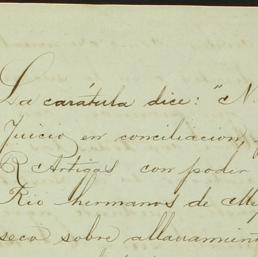 La carátula dice: "N.
Juicio en conciliacion,
R Artigas con poder
Rio hermanos de
seco sobre allanamient